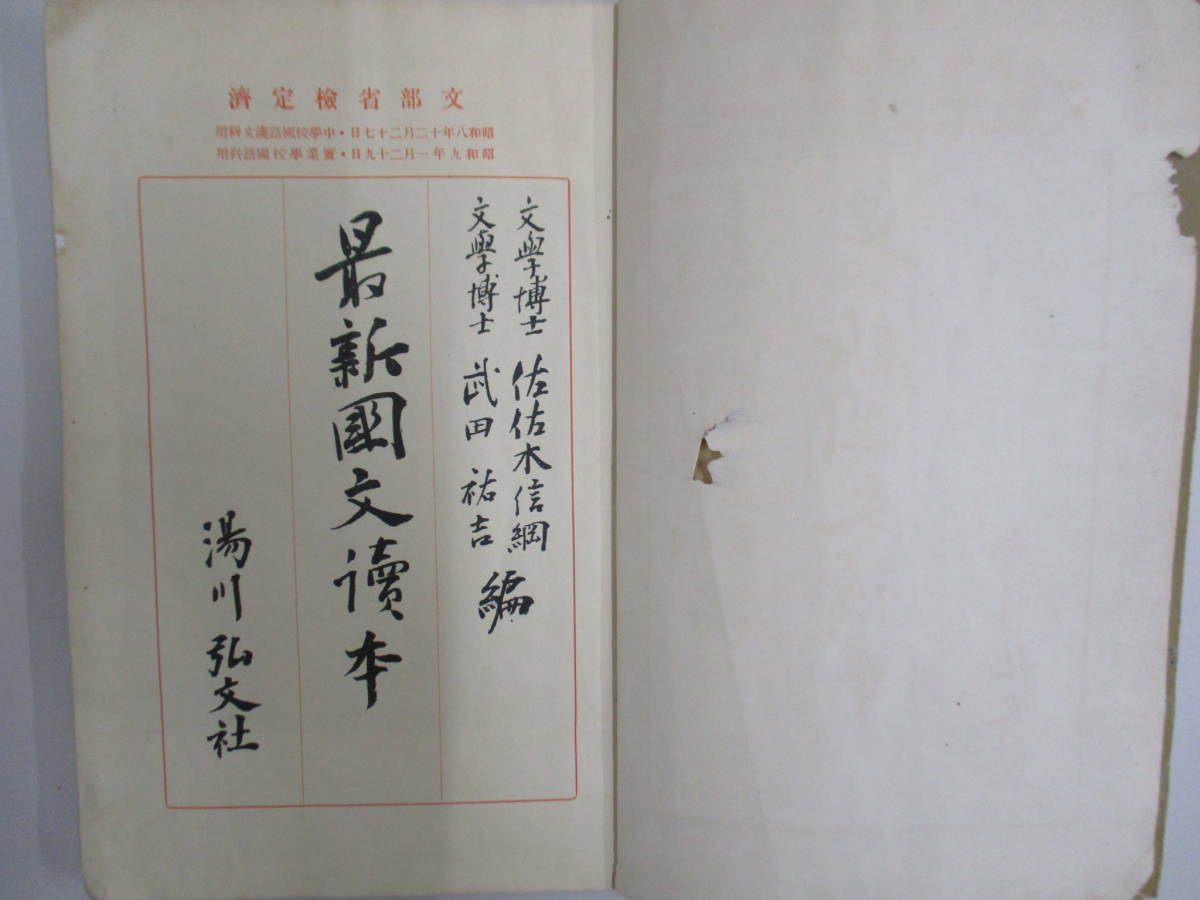 文部省檢定濟
昭和八年十二月二十七日・中學校國語漢文科用
昭和九年一月二十九日・實業學校國語科用
文學博士 佐佐木信綱
文學博士 武田祐吉
編
最新國文讀本
湯川弘文社